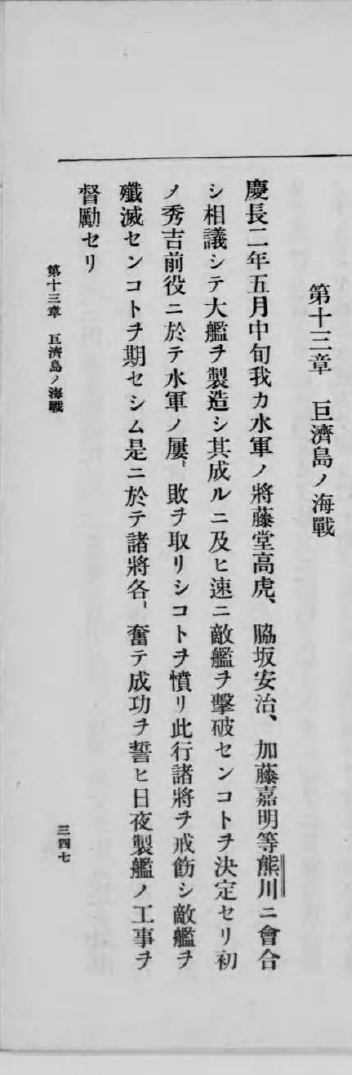 第十三章　巨濟島ノ海戰
慶長二年五月中旬我カ水軍ノ將藤堂高虎、脇坂安治、加藤嘉明等熊川ニ會合
シ相議シテ大艦ヲ製造シ其成ルニ及ヒ速ニ敵艦ヲ擊破センコトヲ決定セリ初
メ秀吉前役ニ於テ水軍ノ屢〻敗ヲ取リシコトヲ憤リ此行諸將ヲ戒飭シ敵艦ヲ
殲滅センコトヲ期セシム是ニ於テ諸將各〻奮テ成功ヲ誓ヒ日夜製艦ノ工事ヲ
督勵セリ
第十三章　巨濟島ノ海戰
三四七